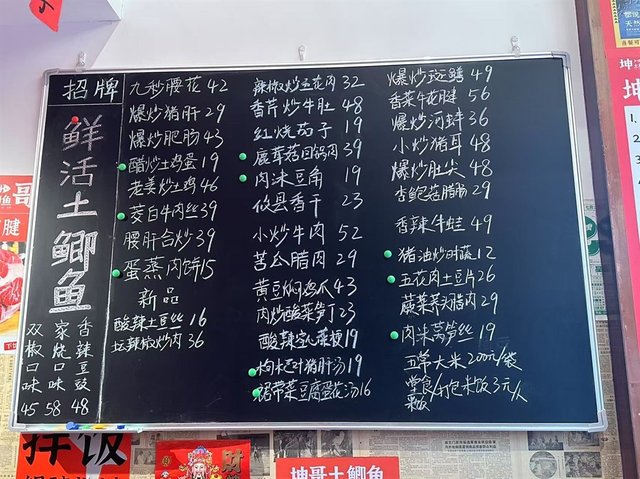 招牌
鲜活土鲫鱼
双椒口味 45
家烧口味 58
香辣豆豉 48
九秒腰花 42
爆炒猪肝 29
爆炒肥肠 43
醋炒土鸡蛋 19
老姜炒土鸡 46
茭白牛肉丝 39
腰肝合炒 39
蛋蒸肉饼 15
新品
酸辣土豆丝 16
坛辣椒炒肉 36
辣椒炒五花肉 32
香芹炒牛肚 48
红烧茄子 19
鹿茸菇回锅肉 39
肉沫豆角 19
攸县香干 23
小炒牛肉 52
苦瓜腊肉 29
黄豆焖鸡爪 43
肉炒酸菜笋丁 23
酸辣空心菜梗 19
枸杞叶猪肝汤 19
裙带菜豆腐蛋花汤 16
爆炒斑鳝 49
香菜牛花腱 56
爆炒河蚌 36
小炒猪耳 48
爆炒肚尖 48
杏鲍菇腊肠 29
香辣牛蛙 49
猪油炒时蔬 12
五花肉土豆片 26
蕨菜炒腊肉 29
肉末莴笋丝 19
五常大米 200元/袋
堂食/打包米饭 3元/人
坤哥土鲫鱼
拌饭